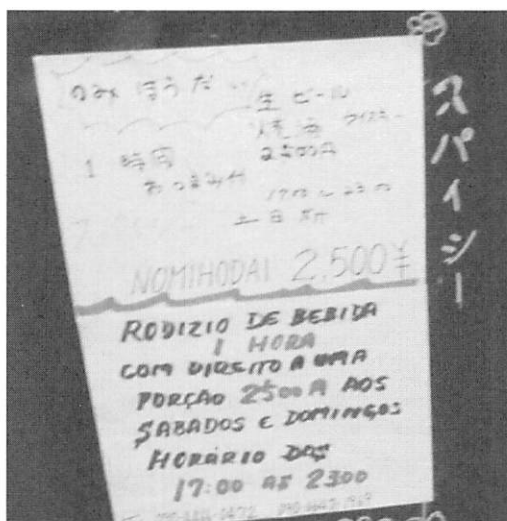 のみほうだい
生ビール
焼酒 ウイスキー
1 時間 2500円
おつまみ付
17:00 ~ 23:00
土日祭
NOMIHODAI 2.500¥
RODIZIO DE BEBIDA
1 HORA
COM DIREITO A UMA
PORÇÃO 2500 A AOS
SABADOS E DOMINGOS
HORÁRIO DAS
17:00 AS 2300
スパイシー